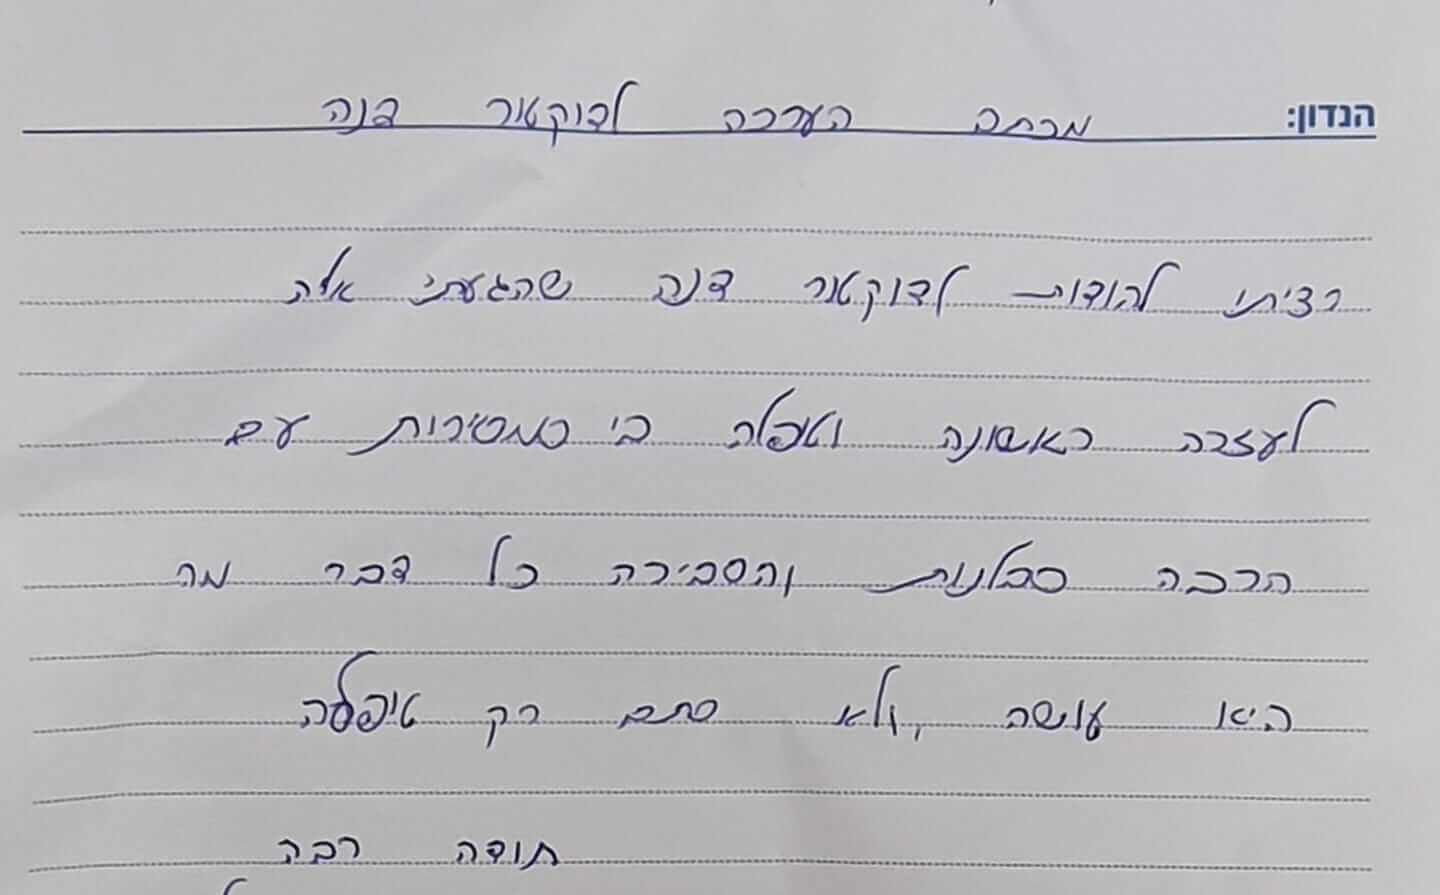 הנדון: מכתב הערכה לדוקטור דנה
רציתי להודות לדוקטור דנה שהגעתי אלה
לעזרה ראשונה וטיפלה בי במסירות עם
הרבה סבלנות והסבירה כל דבר מה
היא עושה, ולא סתם רק טיפלה
תודה רבה